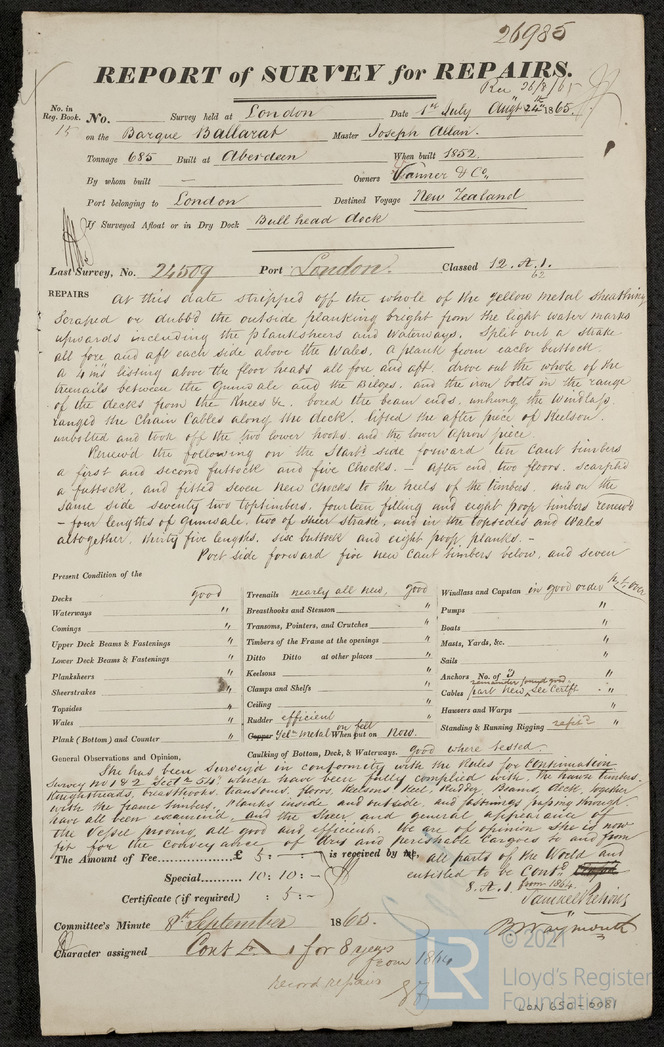 26985
REPORT of SURVEY for REPAIRS.
Rec 26/8/65
No. in Reg. Book. No. Survey held at London Date 1st July Augt 24th 1865.
15 on the Barque Ballarat Master Joseph Allan.
Tonnage 685 Built at Aberdeen When built 1852.
By whom built — Owners & Co.,
Port belonging to London Destined Voyage New Zealand
If Surveyed Afloat or in Dry Dock Bull head dock
Last Survey, No. 24509 Port London. Classed 12. A. 1.
62
REPAIRS At this date stripped off the whole of the yellow metal sheathing
Scraped or dubb'd the outside planking bright from the light water marks
upwards including the Planksheers and Waterways. Split out a strake
all fore and aft each side above the Wales, a plank from each buttock.
a 4 ins listing above the floor heads all fore and aft. drove out the whole of the
treenails between the Gunwale and the Bilges, and the iron bolts in the range
of the decks from the Knees &c. bored the beam ends, unhung the Windlass
ranged the Chain Cables along the deck. lifted the after piece of Keelson,
unbolted and took off the two lower hooks, and the lower apron piece.
Renew'd the following on the Starbd side forward ten Cant timbers
a first and second futtock and five Chocks. – after end, two floors, scarph'd
a futtock, and fitted seven new chocks to the heels of the timbers, and on the
same side seventy two toptimbers, fourteen filling and eight poop timbers renew'd
– four lengths of Gunwale, two of sheer strake, and in the topsides and Wales
altogether, thirty five lengths, six buttock and eight poop planks. –
Port side forward five new Cant timbers below, and seven
Present Condition of the
Decks good
Waterways "
Comings "
Upper Deck Beams & Fastenings "
Lower Deck Beams & Fastenings "
Planksheers "
Sheerstrakes "
Topsides "
Wales "
Plank (Bottom) and Counter "
Treenails nearly all new, good
Breasthooks and Stemson "
Transoms, Pointers, and Crutches "
Timbers of the Frame at the openings "
Ditto Ditto at other places "
Keelsons "
Clamps and Shelfs "
Ceiling "
Rudder efficient "
Copper Yelw metal on felt When put on Now.
Caulking of Bottom, Deck, & Waterways. good where tested.
Windlass and Capstan in good order
Pumps "
Boats "
Masts, Yards, &c. "
Sails "
Anchors No. of 3 "
remainder found good.
Cables part new, See Certift "
Hawsers and Warps "
Standing & Running Rigging refit'd "
General Observations and Opinion,
She has been Survey'd in conformity with the Rules for Continuation
Survey No 1 & 2 Sectn 54, which have been fully complied with. The hawse timbers.
Knightheads, breasthooks, transoms, floors, Keelsons, Keel, Rudder, Beams, deck, together
with the frame timbers. Planks inside and outside, and fastenings passing through.
have all been examined, and the Sheer and general appearance of
the Vessel proving all good and efficient. We are of opinion She is now
fit for the Conveyance of Dry and perishable Cargoes to and from
The Amount of Fee £ 5 : – : – is received by me, all parts of the World and
entitled to be Contd
Special 10 : 10 : – 8. A. 1 from 1864.
Certificate (if required) 5 : –
Committee's Minute 8th September 1865.
Character assigned Contd A 1 for 8 years
from 1864
Record repairs
© 2021
LR
Lloyd's Register
Foundation
LON 650-0081